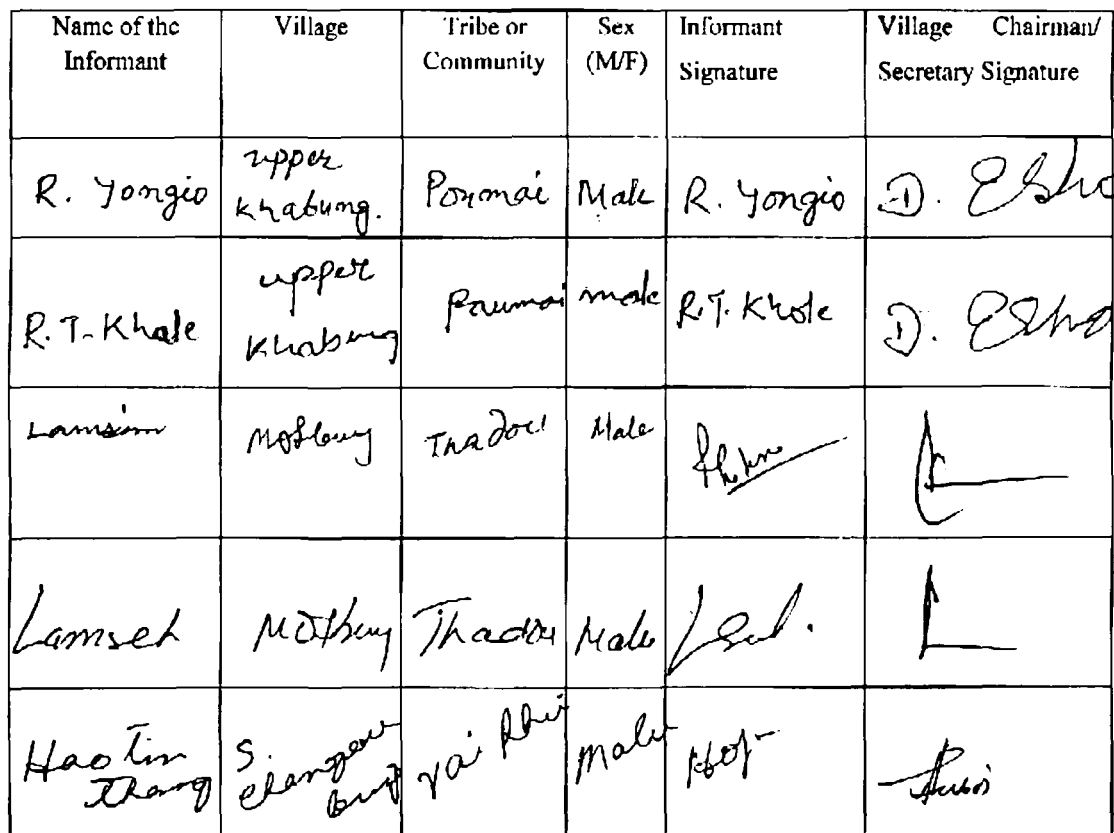 Name of the Informant
Village
Tribe or Community
Sex (M/F)
Informant Signature
Village Chairman/ Secretary Signature
R. Yongio
upper Khabung.
Poumai
Male
R. Yongio
D. Esho
R.T. Khale
upper Khabung
Poumai
male
R.T. Khole
D. Esho
Lamsim
Thadou
Male
Lamseh
Thadou
Male
Haotin Thang
S.
Male